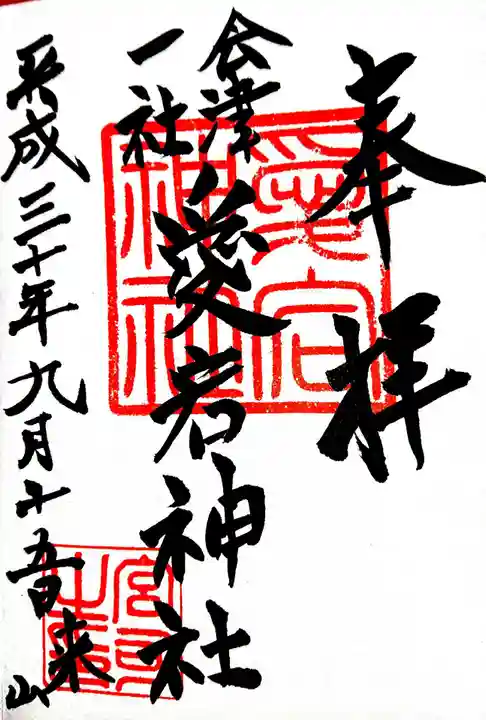 奉拝
会津
一社
愛宕神社
平成三十年九月十五日
来山
愛宕
神社